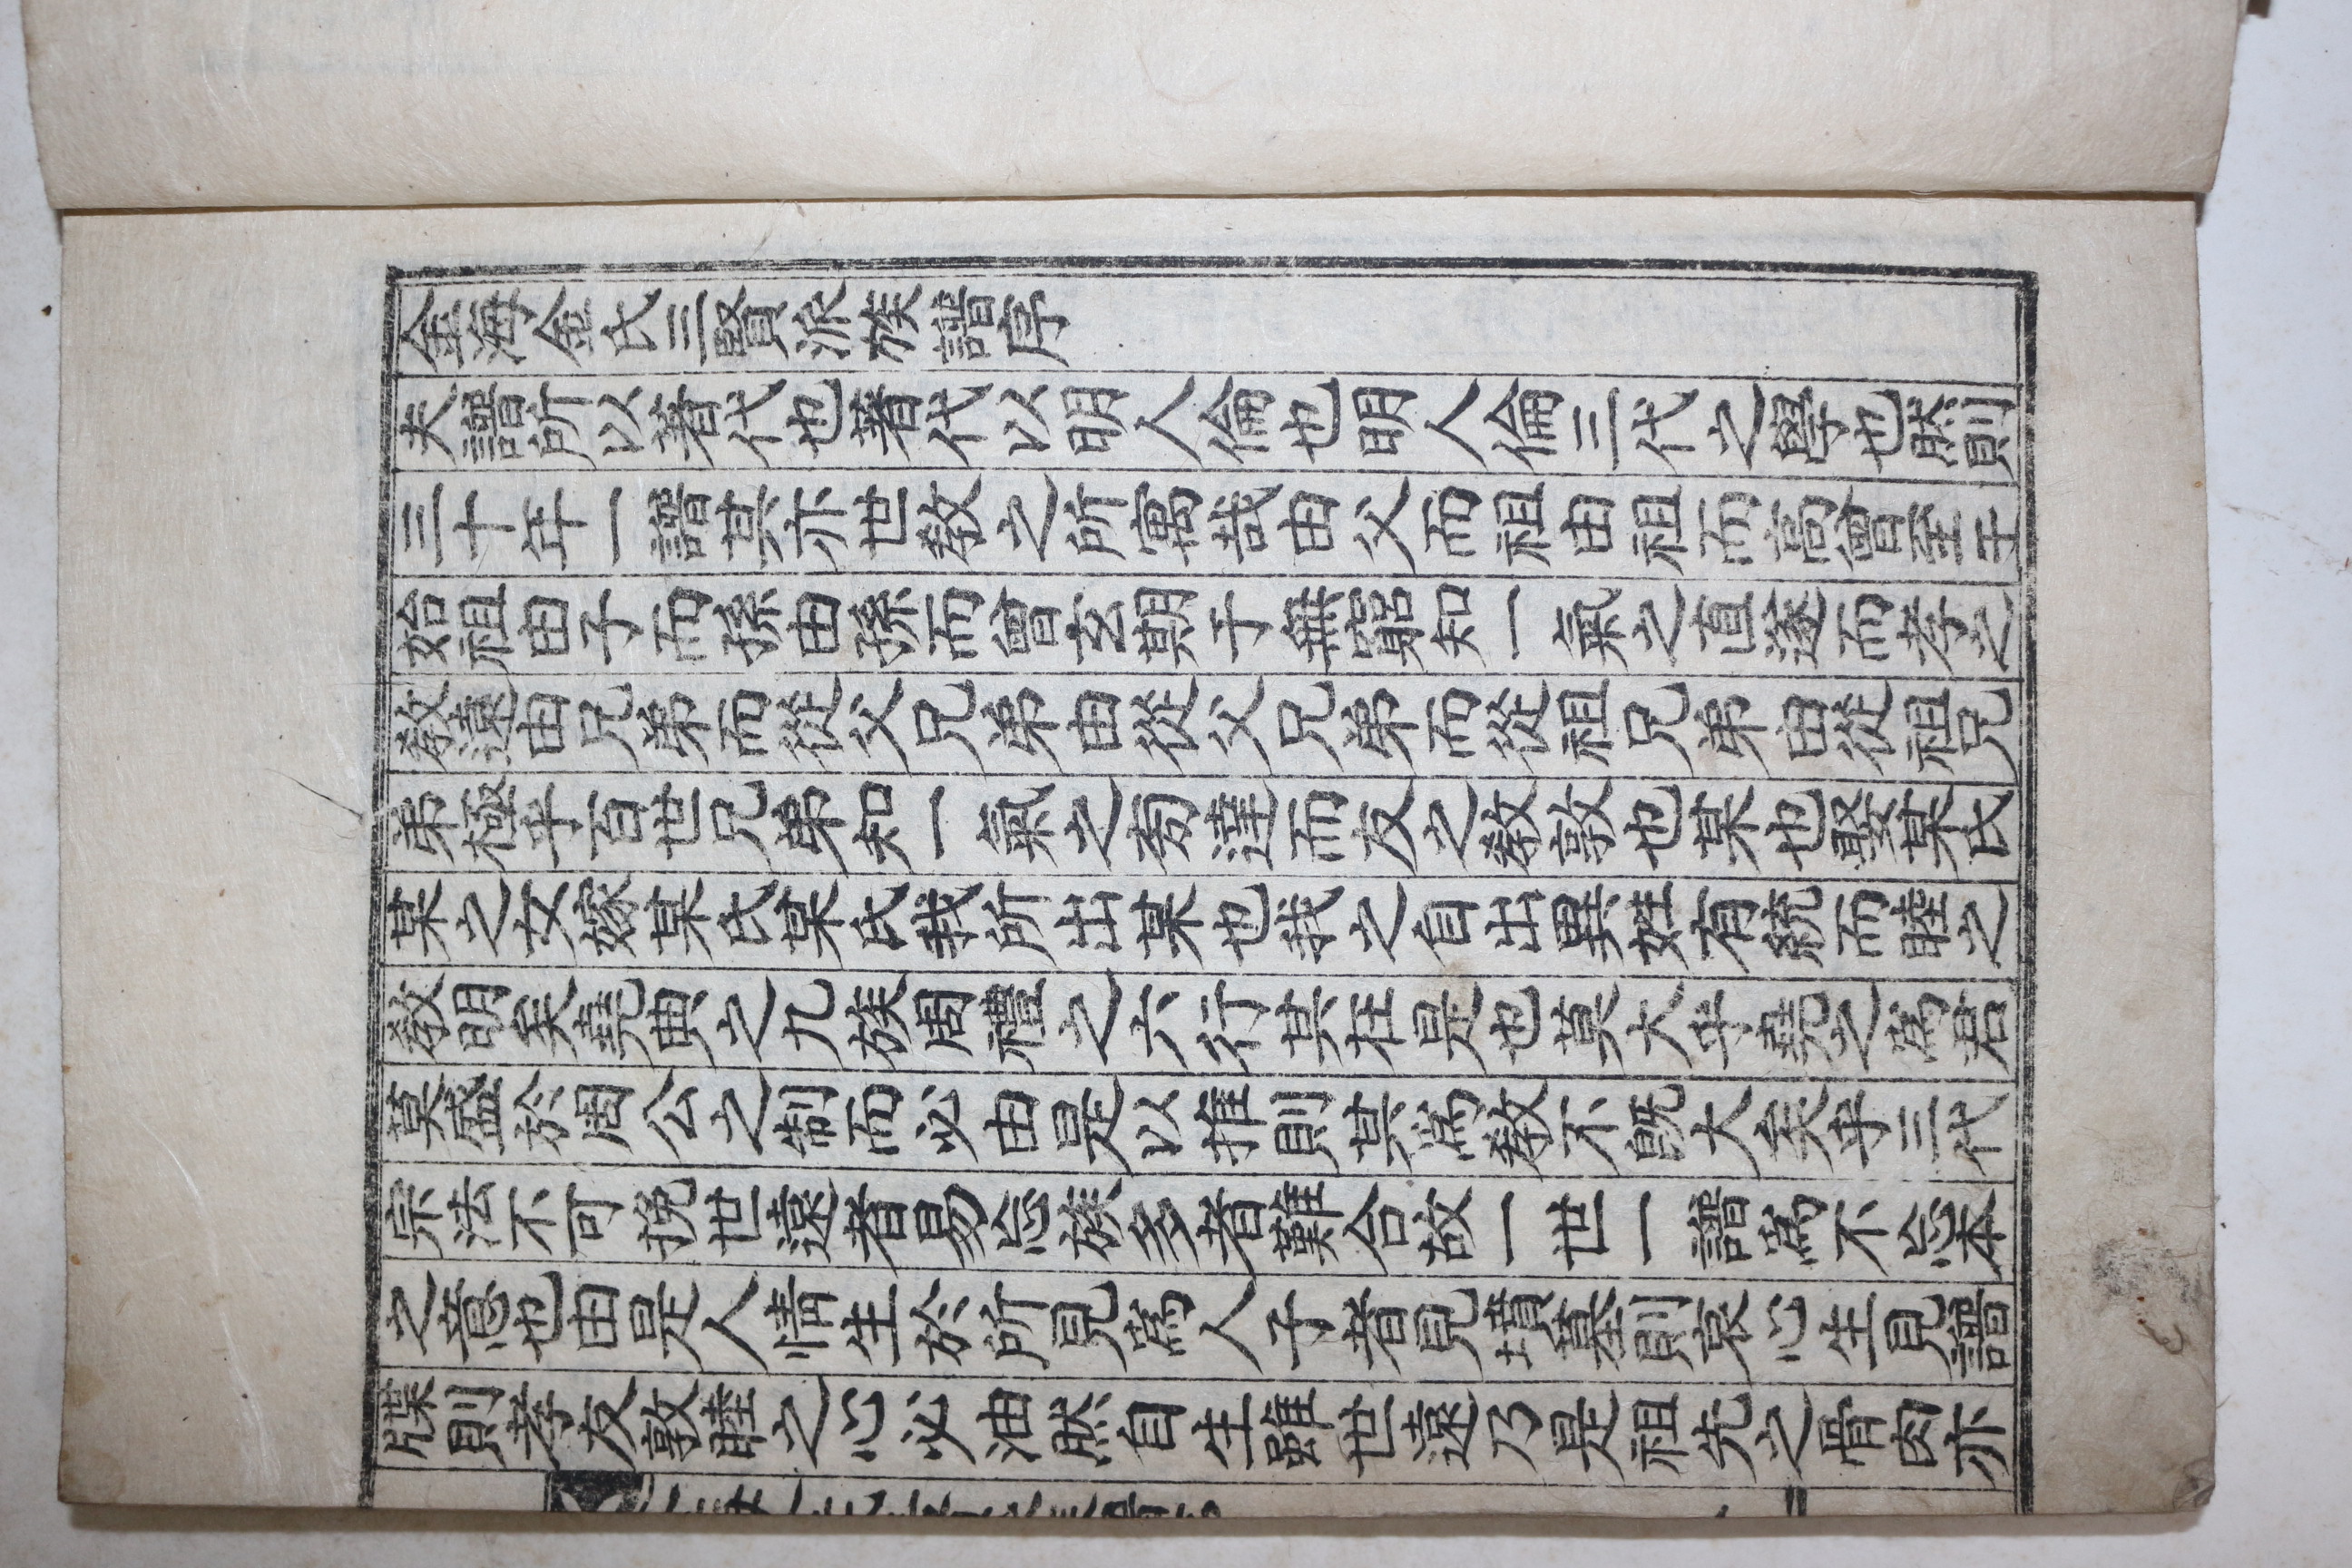 金海金氏三賢派族譜序
夫譜所以著代也著代以明人倫也明人倫三代之學也然則
三十年一譜其亦世敎之所寓哉由父而祖由祖而高曾至于
始祖由子而孫由孫而曾玄期于無窮知一氣之直遂而孝之
敎遠由兄弟而從父兄弟由從父兄弟而從祖兄弟由從祖兄
弟極乎百世兄弟知一氣之旁達而友之敎敦也某也娶某氏
某之女嫁某氏某氏我所出某也我之自出異姓有統而睦之
敎明矣堯典之九族周禮之六行其在是也莫大乎堯之爲君
莫盛於周公之制而必由是以推則其爲敎不旣大矣乎三代
宗法不可挽世遠者易忘族多者難合故一世一譜爲不忘本
之意也由是人情生於所見爲人子者見墳墓則哀心生見譜
牒則孝友敦睦之心必油然自生雖世遠乃是祖先之骨肉亦